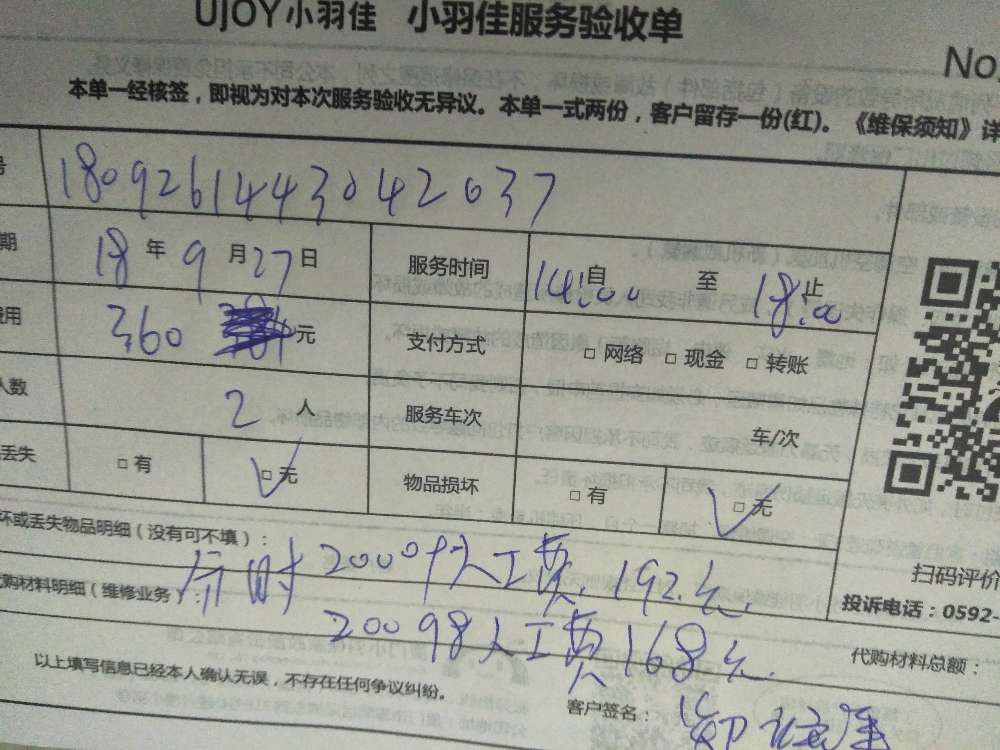 UJOY小羽佳 小羽佳服务验收单
No.
本单一经核签，即视为对本次服务验收无异议。本单一式两份，客户留存一份(红)。《维保须知》详
号 1809261443042037
期 18年9月27日 服务时间 14:00自 至 18:00止
费用 360 元 支付方式 □网络 □现金 □转账
人数 2人 服务车次 车/次
丢失 □有 □无 物品损坏 □有 □无
坏或丢失物品明细（没有可不填）：
2000 人工费 192元
代购材料明细（维修业务）：
20098人工费168元
以上填写信息已经本人确认无误，不存在任何争议纠纷。
客户签名：
扫码评价
投诉电话：0592-
代购材料总额：